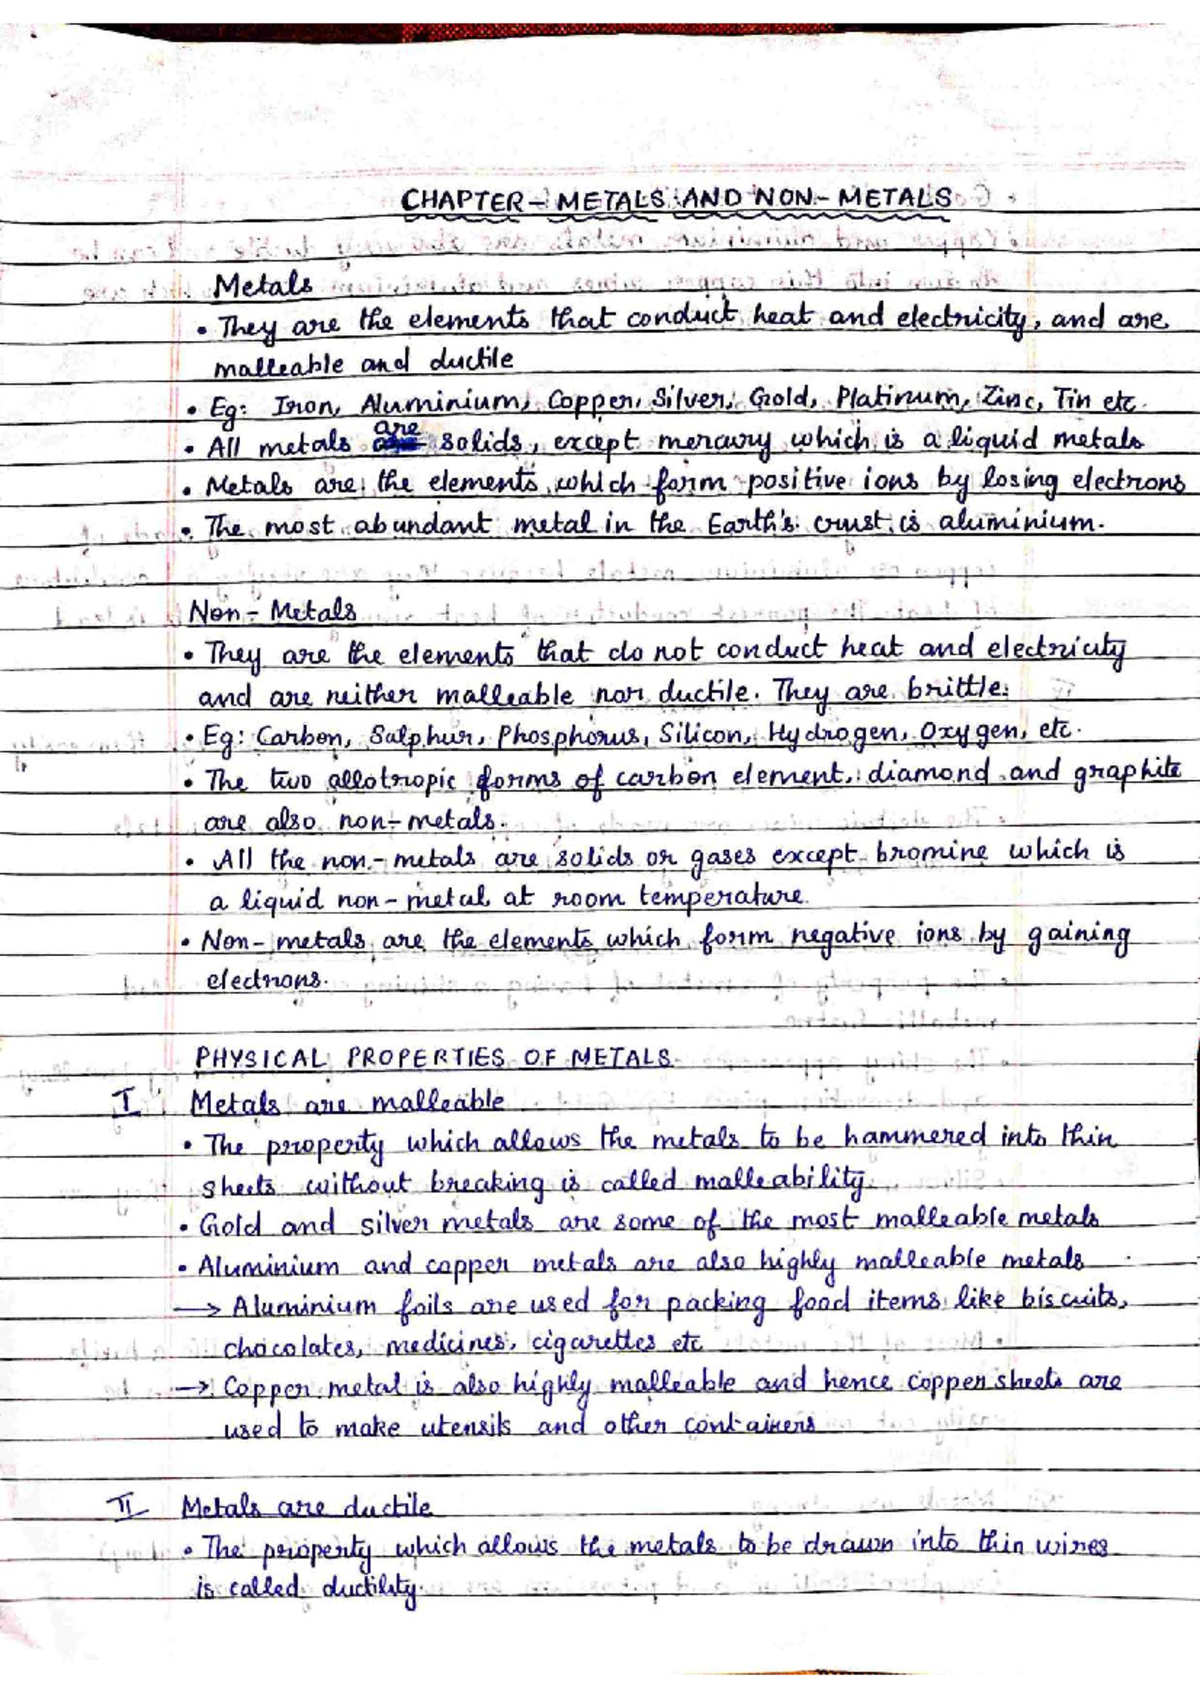 CHAPTER - METALS AND NON-METALS
Metals
• They are the elements that conduct heat and electricity, and are
malleable and ductile
• Eg: Iron, Aluminium, Copper, Silver, Gold, Platinum, Zinc, Tin etc.
• All metals are solids, except mercury which is a liquid metals
• Metals are the elements which form positive ions by losing electrons
• The most abundant metal in the Earth's crust is aluminium.
Non-Metals
• They are the elements that do not conduct heat and electricity
and are neither malleable nor ductile. They are brittle.
• Eg: Carbon, Sulphur, Phosphorus, Silicon, Hydrogen, Oxygen, etc.
• The two allotropic forms of carbon element, diamond and graphite
are also non-metals.
• All the non-metals are solids or gases except bromine which is
a liquid non-metal at room temperature.
• Non-metals are the elements which form negative ions by gaining
electrons.
PHYSICAL PROPERTIES OF METALS
I Metals are malleable
• The property which allows the metals to be hammered into thin
sheets without breaking is called malleability.
• Gold and silver metals are some of the most malleable metals
• Aluminium and copper metals are also highly malleable metals
→ Aluminium foils are used for packing food items like biscuits,
chocolates, medicines, cigarettes etc
→ Copper metal is also highly malleable and hence copper sheets are
used to make utensils and other containers
II Metals are ductile
• The property which allows the metals to be drawn into thin wires
is called ductility.